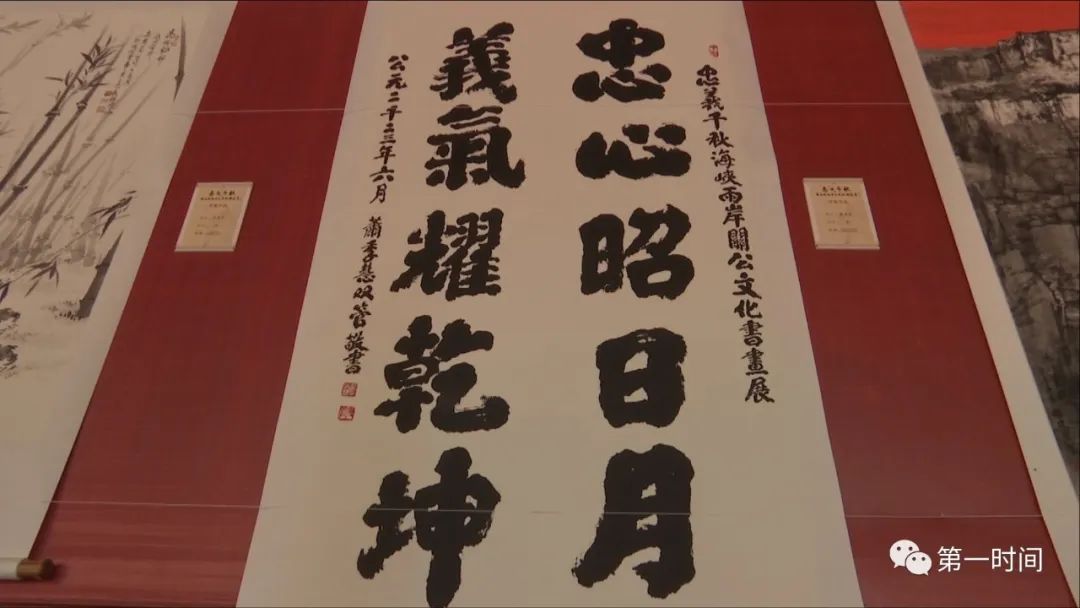 忠義千秋海峽兩岸關公文化書畫展
忠心昭日月
義氣耀乾坤
公元二千二三年六月
蕭季慧双管敬書
第一时间